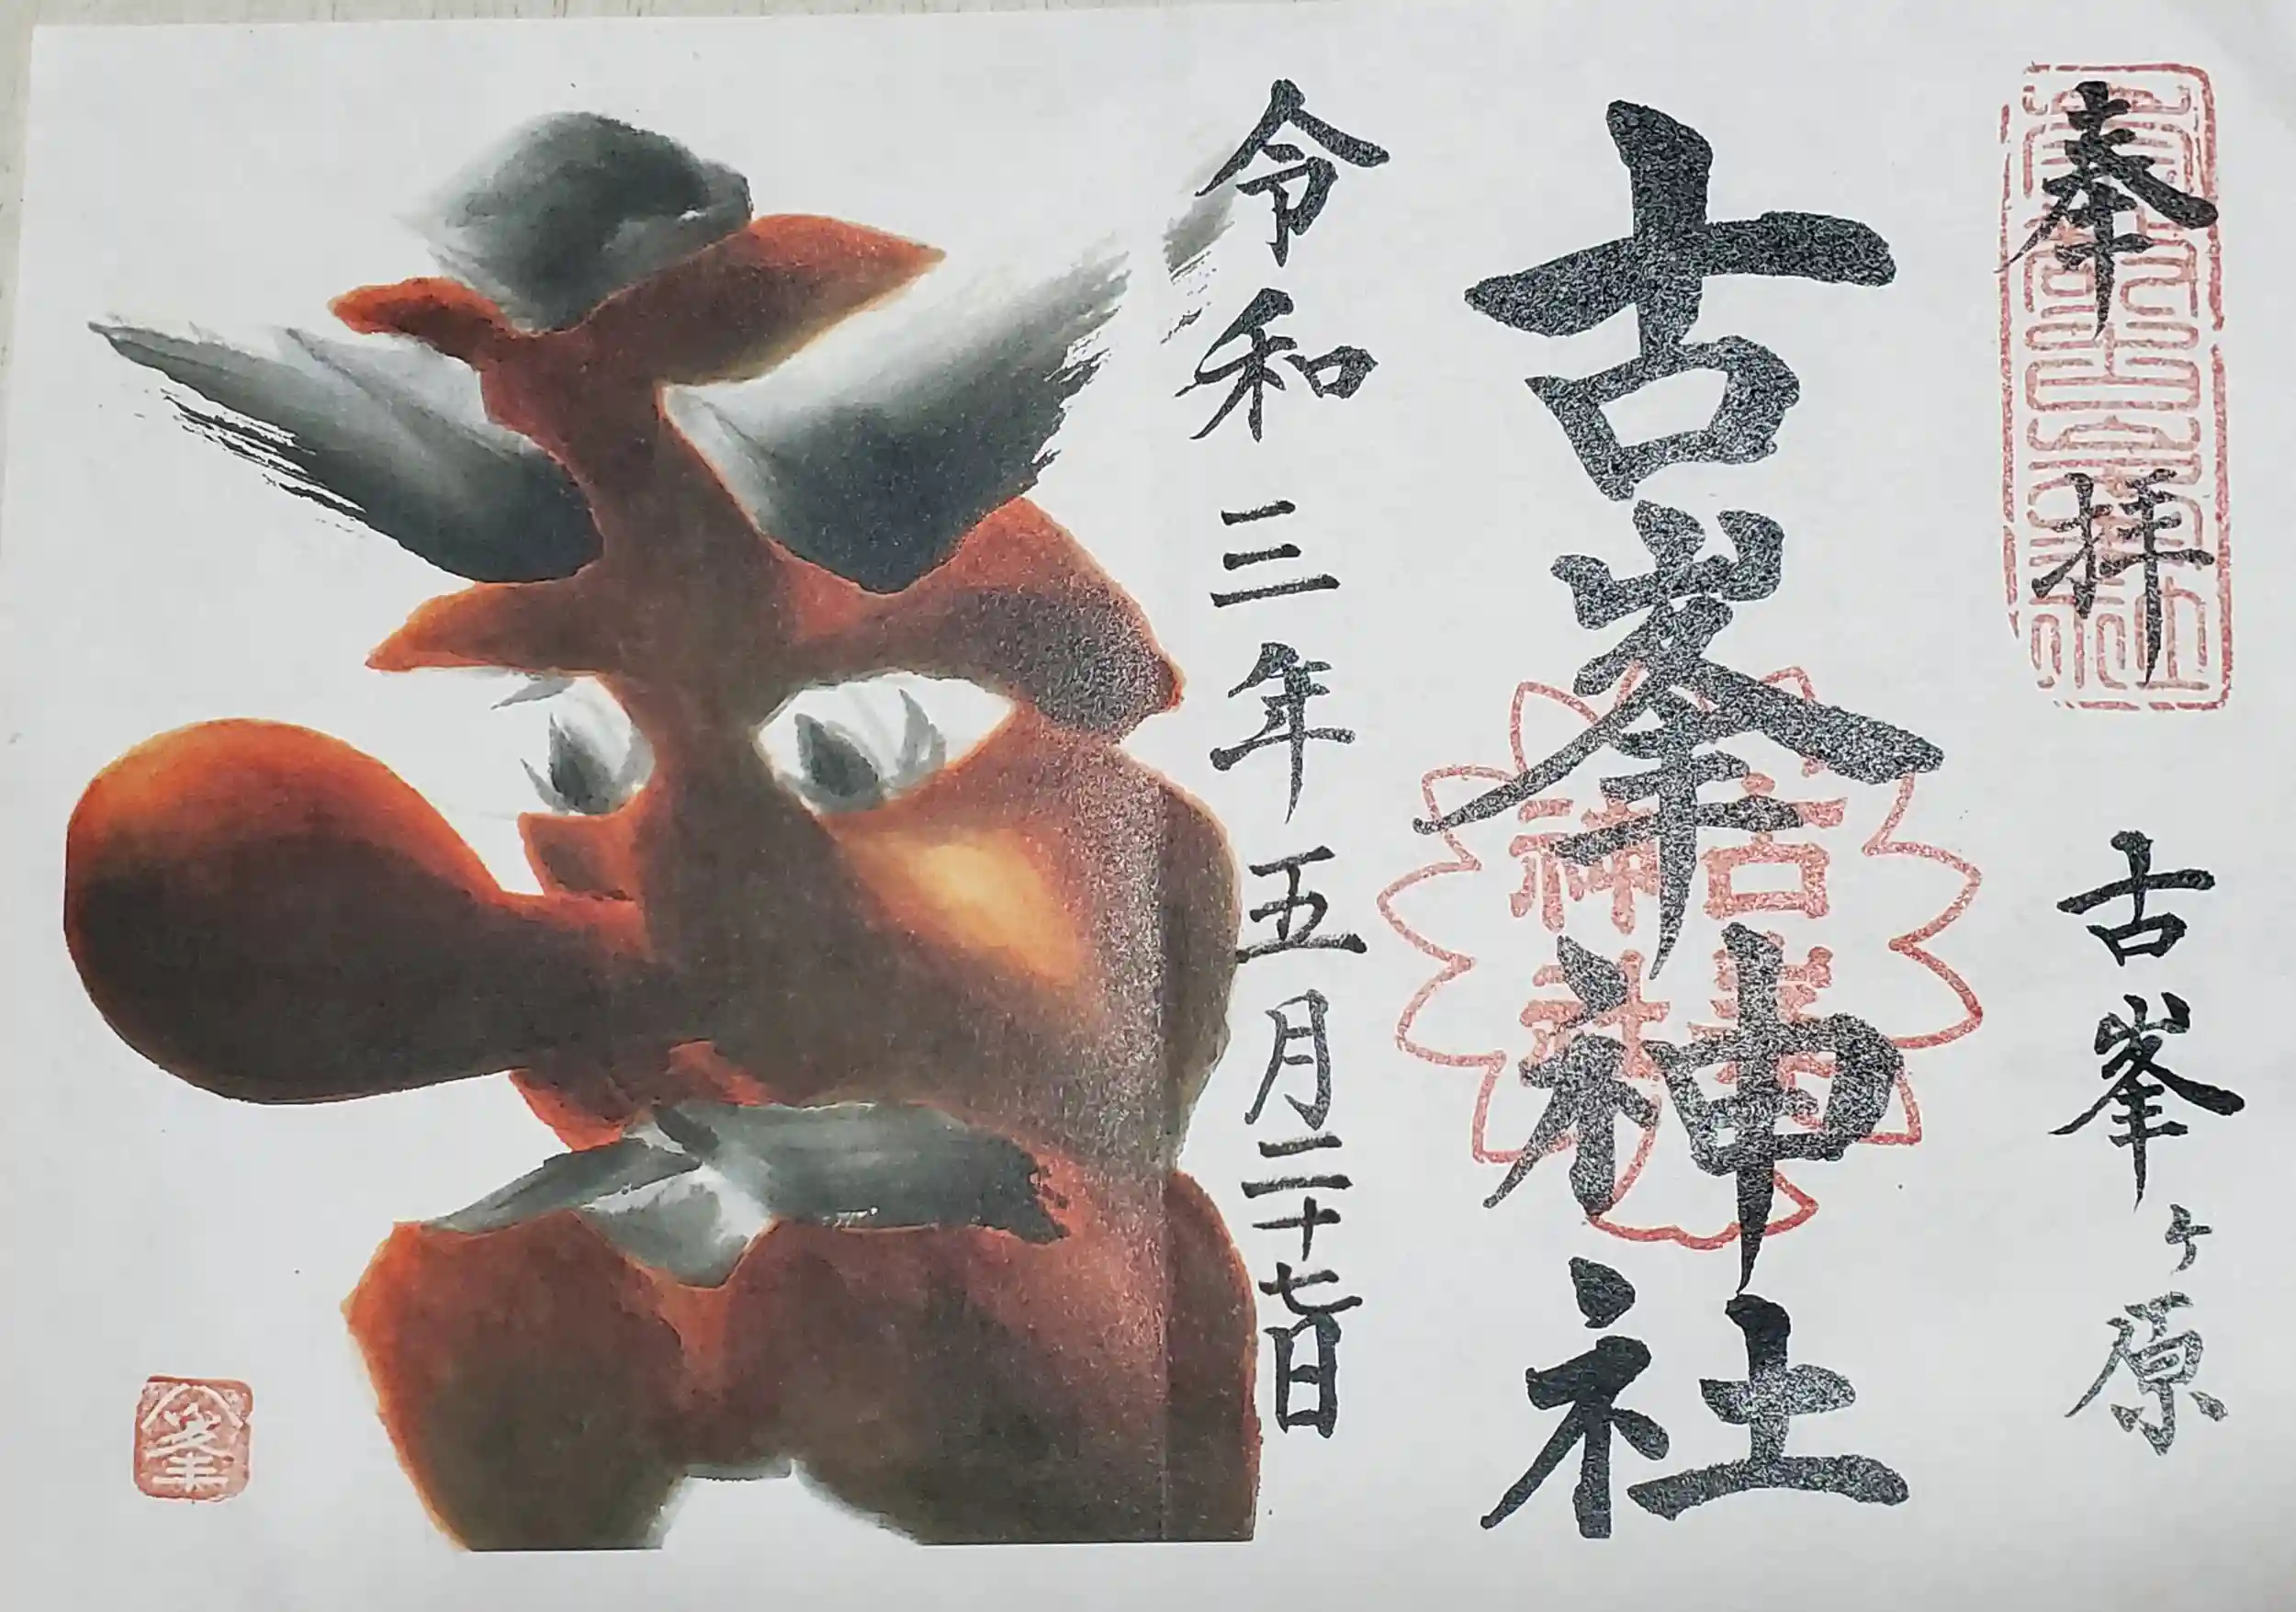 奉拝
古峯ヶ原
古峯神社
古峯
神社
令和三年五月二十七日
峯